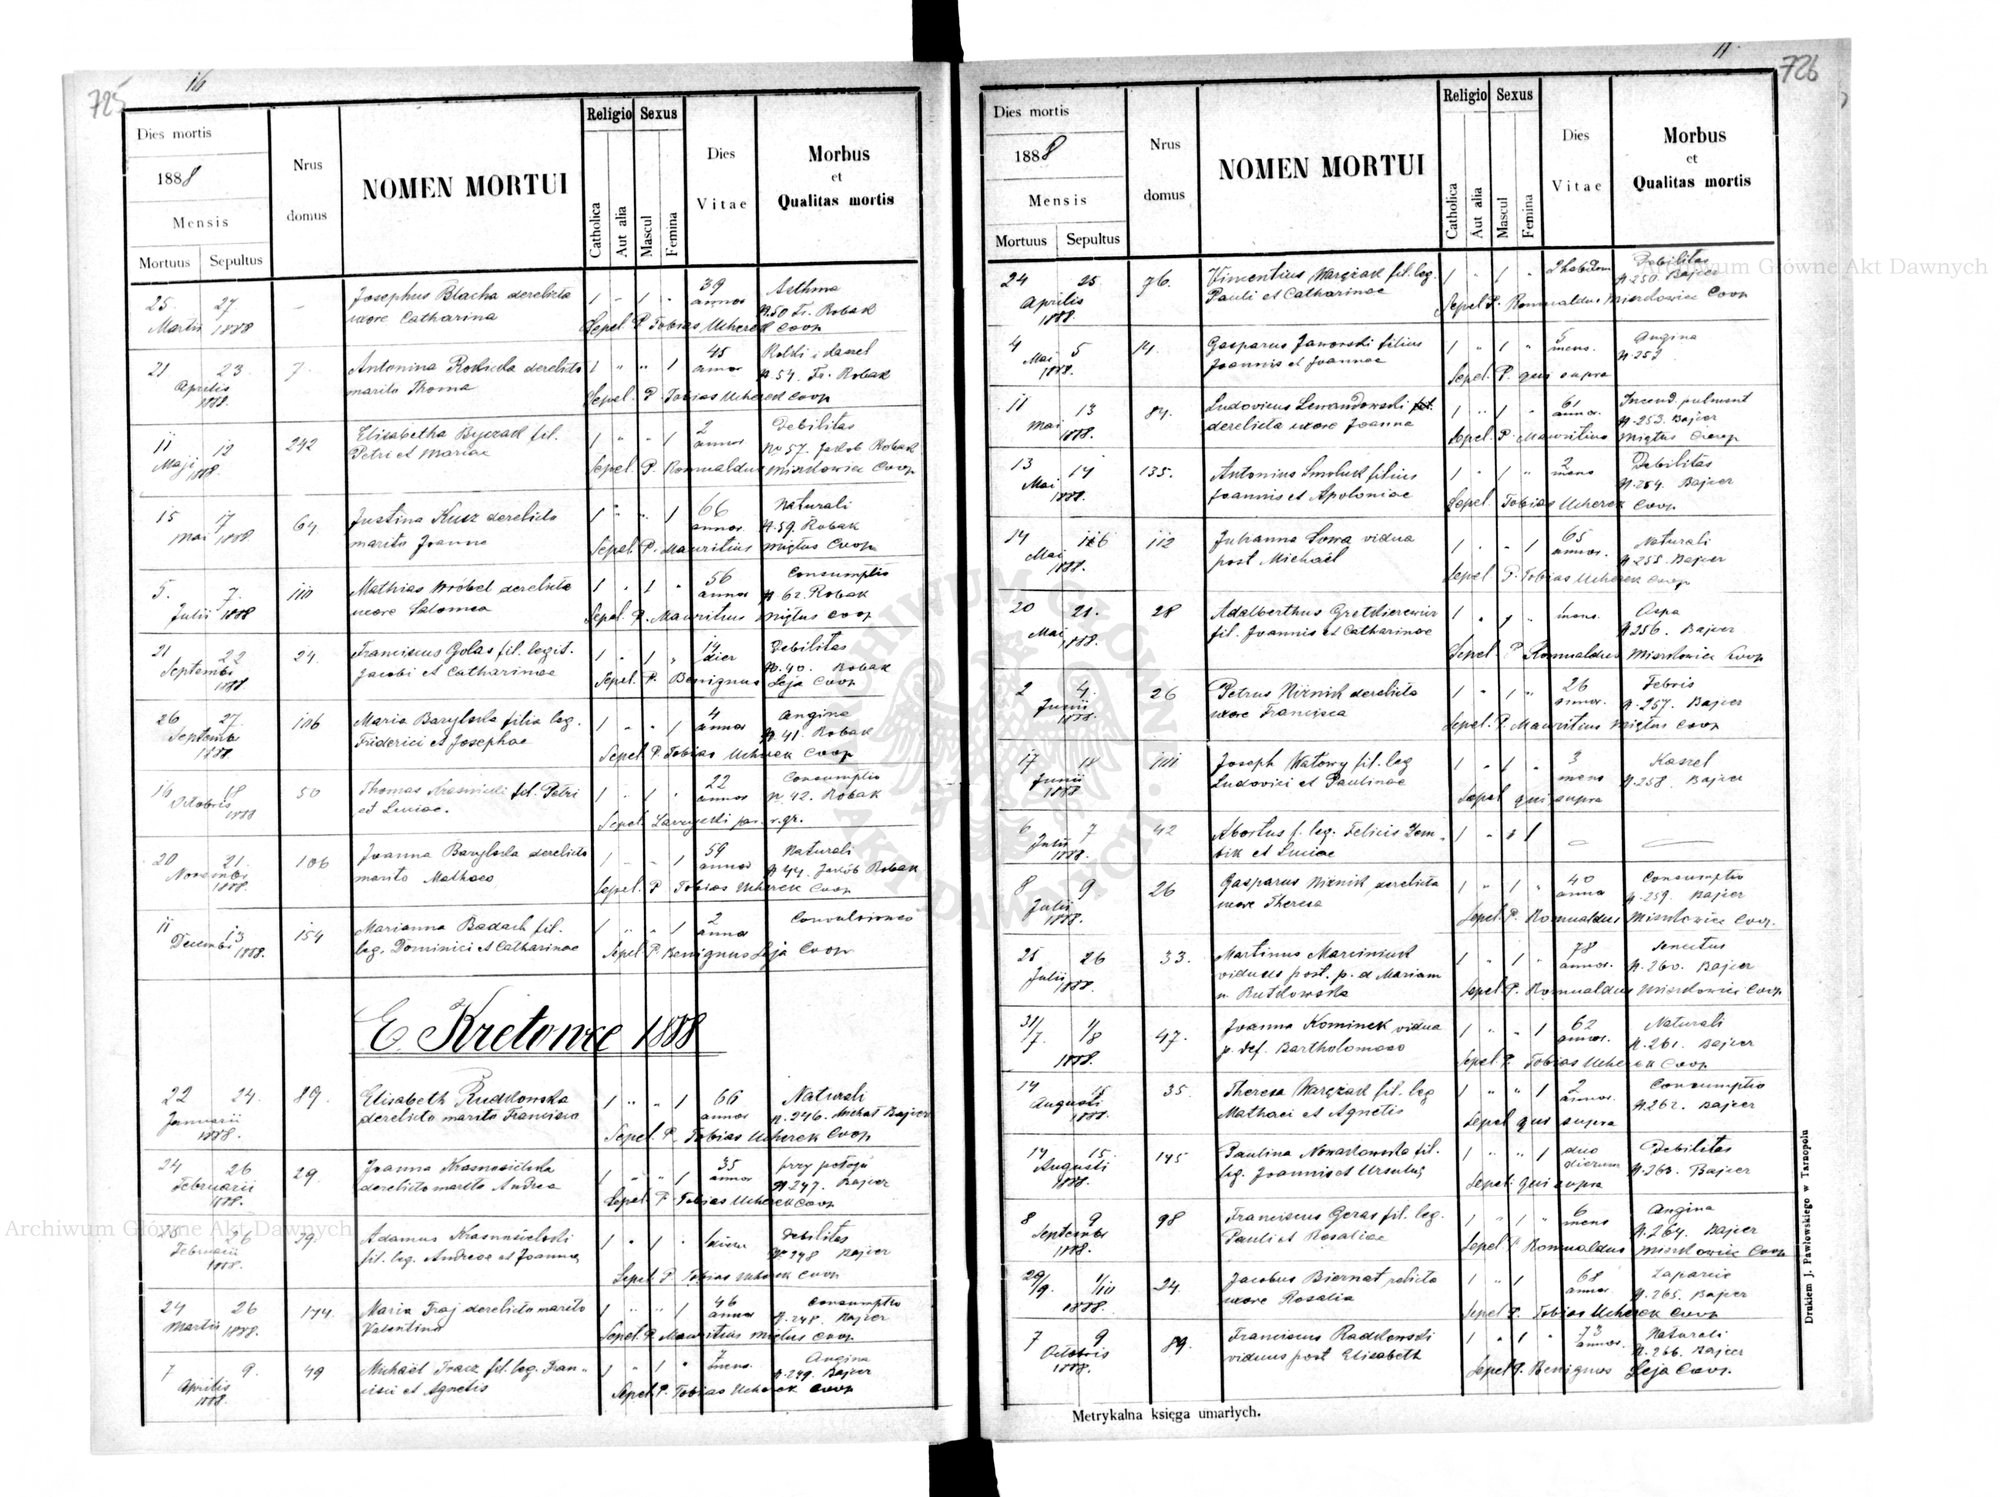 725
16
Dies mortis
1888
Mensis
Mortuus Sepultus
Nrus domus
NOMEN MORTUI
Religio
Catholica
Aut alia
Sexus
Mascul
Femina
Dies Vitae
Morbus
et
Qualitas mortis
25 27 Josephus Blacha derelicta 1 " 1 " 39 Asthma
Martii 1888 uxore Catharina annor N.50 Fr. Robak
Sepel. P. Tobias Ucherek Coop
21 23 7 Antonina derelicto 1 " " 1 45
Aprilis marito Thoma annor N.54. Fr. Robak
1888. Sepel. P. Tobias Ucherek Coop
11 12 242 Elisabetha fil. 1 " " 1 2 Debilitas
Maji 1888. Petri et Mariae annor No 57. Jakób Robak
Sepel. P. Romualdus Coop
15 17 64 Justina Kusz derelicto 1 " " 1 66 Naturali
Mai 1888. marito Joanne annor N.59. Robak
Sepel. P. Mauritius Miętus Coop
5. 7. 110 Mathias Wróbel derelicta 1 " 1 " 56 Consumptio
Julii 1888 uxore Salomea annor N 62. Robak
Sepel. P. Mauritius Miętus Coop
21 22 24. Franciscus Golas fil. legit. 1 " 1 " 14 Debilitas
Septembr Jacobi et Catharinae dier N.40. Robak
1888 Sepel. P. Benignus Leja Coop
26 27. 106 Maria Baryloska filia leg. 1 " " 1 4 Angina
Septembr Friderici et Josephae annor N 41 Robak
1888. Sepel. P. Tobias Ucherek Coop
16 18 50 Thomas fil. Petri 1 " 1 " 22 Consumptio
Octobris 1888 et Luciae. annor N. 42. Robak
Sepel.
20 21. 106 Joanna Baryloska derelicto 1 " " 1 59 Naturali
Novembr marito Mathaeo annor N 44. Jakób Robak
1888. Sepel. P. Tobias Ucherek Coop
11 13 154 Marianna Badach fil. 1 " " 1 2 Convulsiones
Decembr 1888. leg. Dominici et Catharinae annor
Sepel P. Benignus Leja Coop
E Kretowce 1888
22 24. 89. Elisabeth Rudkowska 1 " " 1 66 Naturali
Januarii derelicto marito Francisco annor N. 246. Michał Bajcer
1888. Sepel. P. Tobias Ucherek Coop
24 26 29. Joanna Krasnosielska 1 " " 1 35 przy połogu
Februarii derelicto marito Andrea annor N 247. Bajcer
1888. Sepel. P. Tobias Ucherek Coop
25 26 29 Adamus Krasnosielski 1 " 1 " Debilitas
Februarii fil. leg. Andreae et Joannae No 248 Bajcer
1888. Sepel P. Tobias Ucherek Coop
24 26 174. Maria Fraj derelicto marito 1 " " 1 46 Consumptio
Martii 1888. Valentino annor N. 248. Bajcer
Sepel. P. Mauritius Miętus Coop
7 9. 49 Michael Tracz fil. leg. Fran- 1 " 1 " 7 Angina
Aprilis cisci et Agnetis mens. N. 249. Bajcer
1888. Sepel. P. Tobias Ucherek Coop
726
11.
Dies mortis
1888
Mensis
Mortuus Sepultus
Nrus domus
NOMEN MORTUI
Religio
Catholica
Aut alia
Sexus
Mascul
Femina
Dies Vitae
Morbus
et
Qualitas mortis
24 25. 76. Vincentius Warczak fil. leg. 1 " 1 " Debilitas
Aprilis Pauli et Catharinae N.250. Bajcer
1888. Sepel P. Romualdus Coop
4 5 14. Gasparus Jaworski filius 1 " 1 " 5 Angina
Mai Joannis et Joannae mens. N.252
1888. Sepel. P. qui supra
11 13 84. Ludovicus Lewandowski 1 " 1 " 61
Mai 1888. derelicta uxore Joanna annor. N.253. Bajcer
Sepel. P. Mauritius Miętus Coop
13 14 135. Antonius Smoluk filius 1 " 1 " 2 Debilitas
Mai 1888. Joannis et Apoloniae mens N.254. Bajcer
Sepel. Tobias Ucherek Coop
14 16 112 Julianna Sowa vidua 1 " " 1 65 Naturali
Mai post. Michael annor. N.255. Bajcer
1888. Sepel P. Tobias Ucherek Coop
20 21. 28 Adalberthus 1 " 1 " mens.
Mai 1888. fil. Joannis et Catharinae N 256. Bajcer
Sepel. P. Romualdus Coop
2 4. 26 Petrus Niżnik derelicta 1 " 1 " 26 Febris
Junii uxore Francisca annor. N.257. Bajcer
1888. Sepel. P. Mauritius Miętus Coop
17 18 101 Joseph Watowy fil. leg 1 " 1 " 3 Kaszel
Junii Ludovici et Paulinae mens N.258. Bajcer
1888 Sepel qui supra
6 7 42 Abortus f. leg. Felicis Dem- 1 "
Julii bik et Luciae
1888.
8 9 26 Gasparus Niżnik derelicta 1 " 1 " 40 Consumptio
Julii uxore Theresa annor N.259. Bajcer
1888. Sepel. P. Romualdus Coop.
25 26 33. Martinus Marciniuk 1 " 1 " 78 Senectus
Julii viduus post. p. d Mariam annor. N.260. Bajcer
1888. Sepel. P. Romualdus Coop
31/7 1/8 47. Joanna Kominek vidua 1 " " 1 62 Naturali
1888. p. def. Bartholomaeo annor. N.261. Bajcer
Sepel P. Tobias Ucherek Coop
14 15 35. Theresa Warczak fil. leg 1 " " 1 2 Consumptio
Augusti Mathaei et Agnetis annor. N.262. Bajcer
1888. Sepel qui supra
14 15. 145 Paulina Nowakowska fil. 1 " " 1 duo Debilitas
Augusti leg. Joannis et Ursulae dierum N.263. Bajcer
1888. Sepel. qui supra
8 9 98 Franciscus Geras fil. leg. 1 " 1 " 6 Angina
Septembr Pauli et Rosaliae mens N.264. Bajcer
1888. Sepel. P. Romualdus Coop
29/9. 1/10 24. Jacobus Biernat relicta 1 " 1 68
1888. uxore Rosalia annor N.265. Bajcer
Sepel P. Tobias Ucherek Coop
7 9 89. Franciscus Radkowski 1 " 1 " 73 Naturali
Octobris viduus post Elisabeth annor. N.266. Bajcer
1888. Sepel P. Benignus Leja Coop.
Metrykalna księga umarłych.
Drukiem J. Pawłowskiego w Tarnopolu
Archiwum Główne Akt Dawnych
Archiwum Główne Akt Dawnych
ARCHIWUM GŁÓWNE AKT DAWNYCH